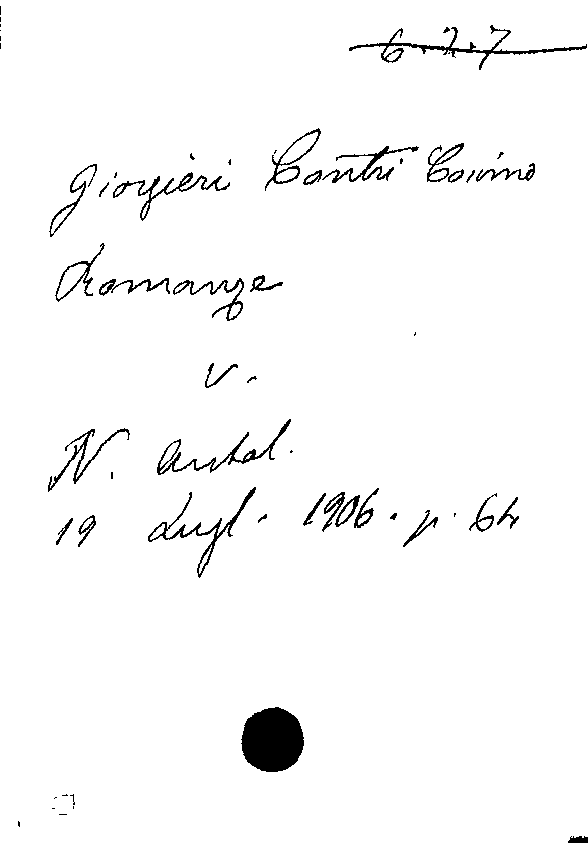 6.2.7
Giorgieri Contri Cosimo
Romanze
v.
N. Antol.
19 Lugl. 1906. p. 64